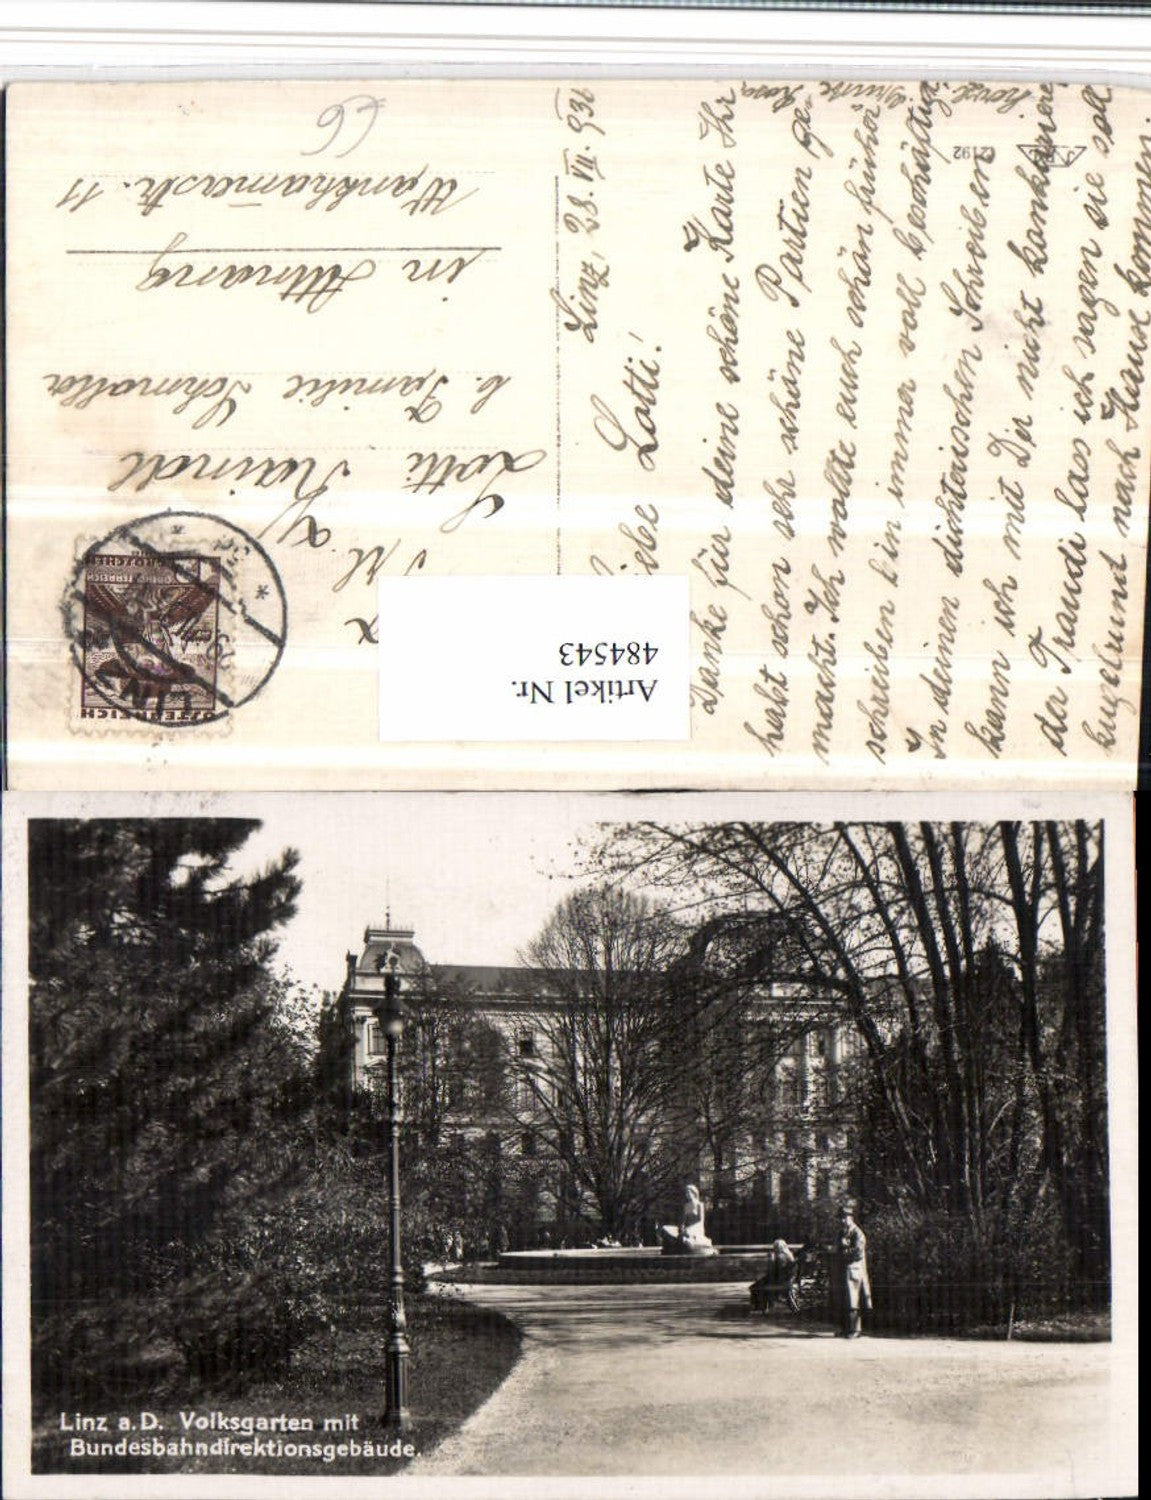 66
An
Frl.
Lotti Haindl
b. Familie Schmaller
in Attnang
Wankhamerstr. 11
ÖSTERREICH
GROSCHEN
LINZ
Artikel Nr.
484543
Linz, 28. VII. 936
Liebe Lotti!
Danke für deine schöne Karte Ihr
habt schon sehr schöne Partien ge-
macht. Ich wollte euch schön früher
schreiben bin immer voll beschäftigt
In deinen dichterischen Schreiben
kann ich mit Dir nicht konkurere
der Traudi lass ich sagen sie soll
kugelrund nach Hause kommen.
Herzl. Grüsse Rosa
12192
Linz a.D. Volksgarten mit
Bundesbahndirektionsgebäude.